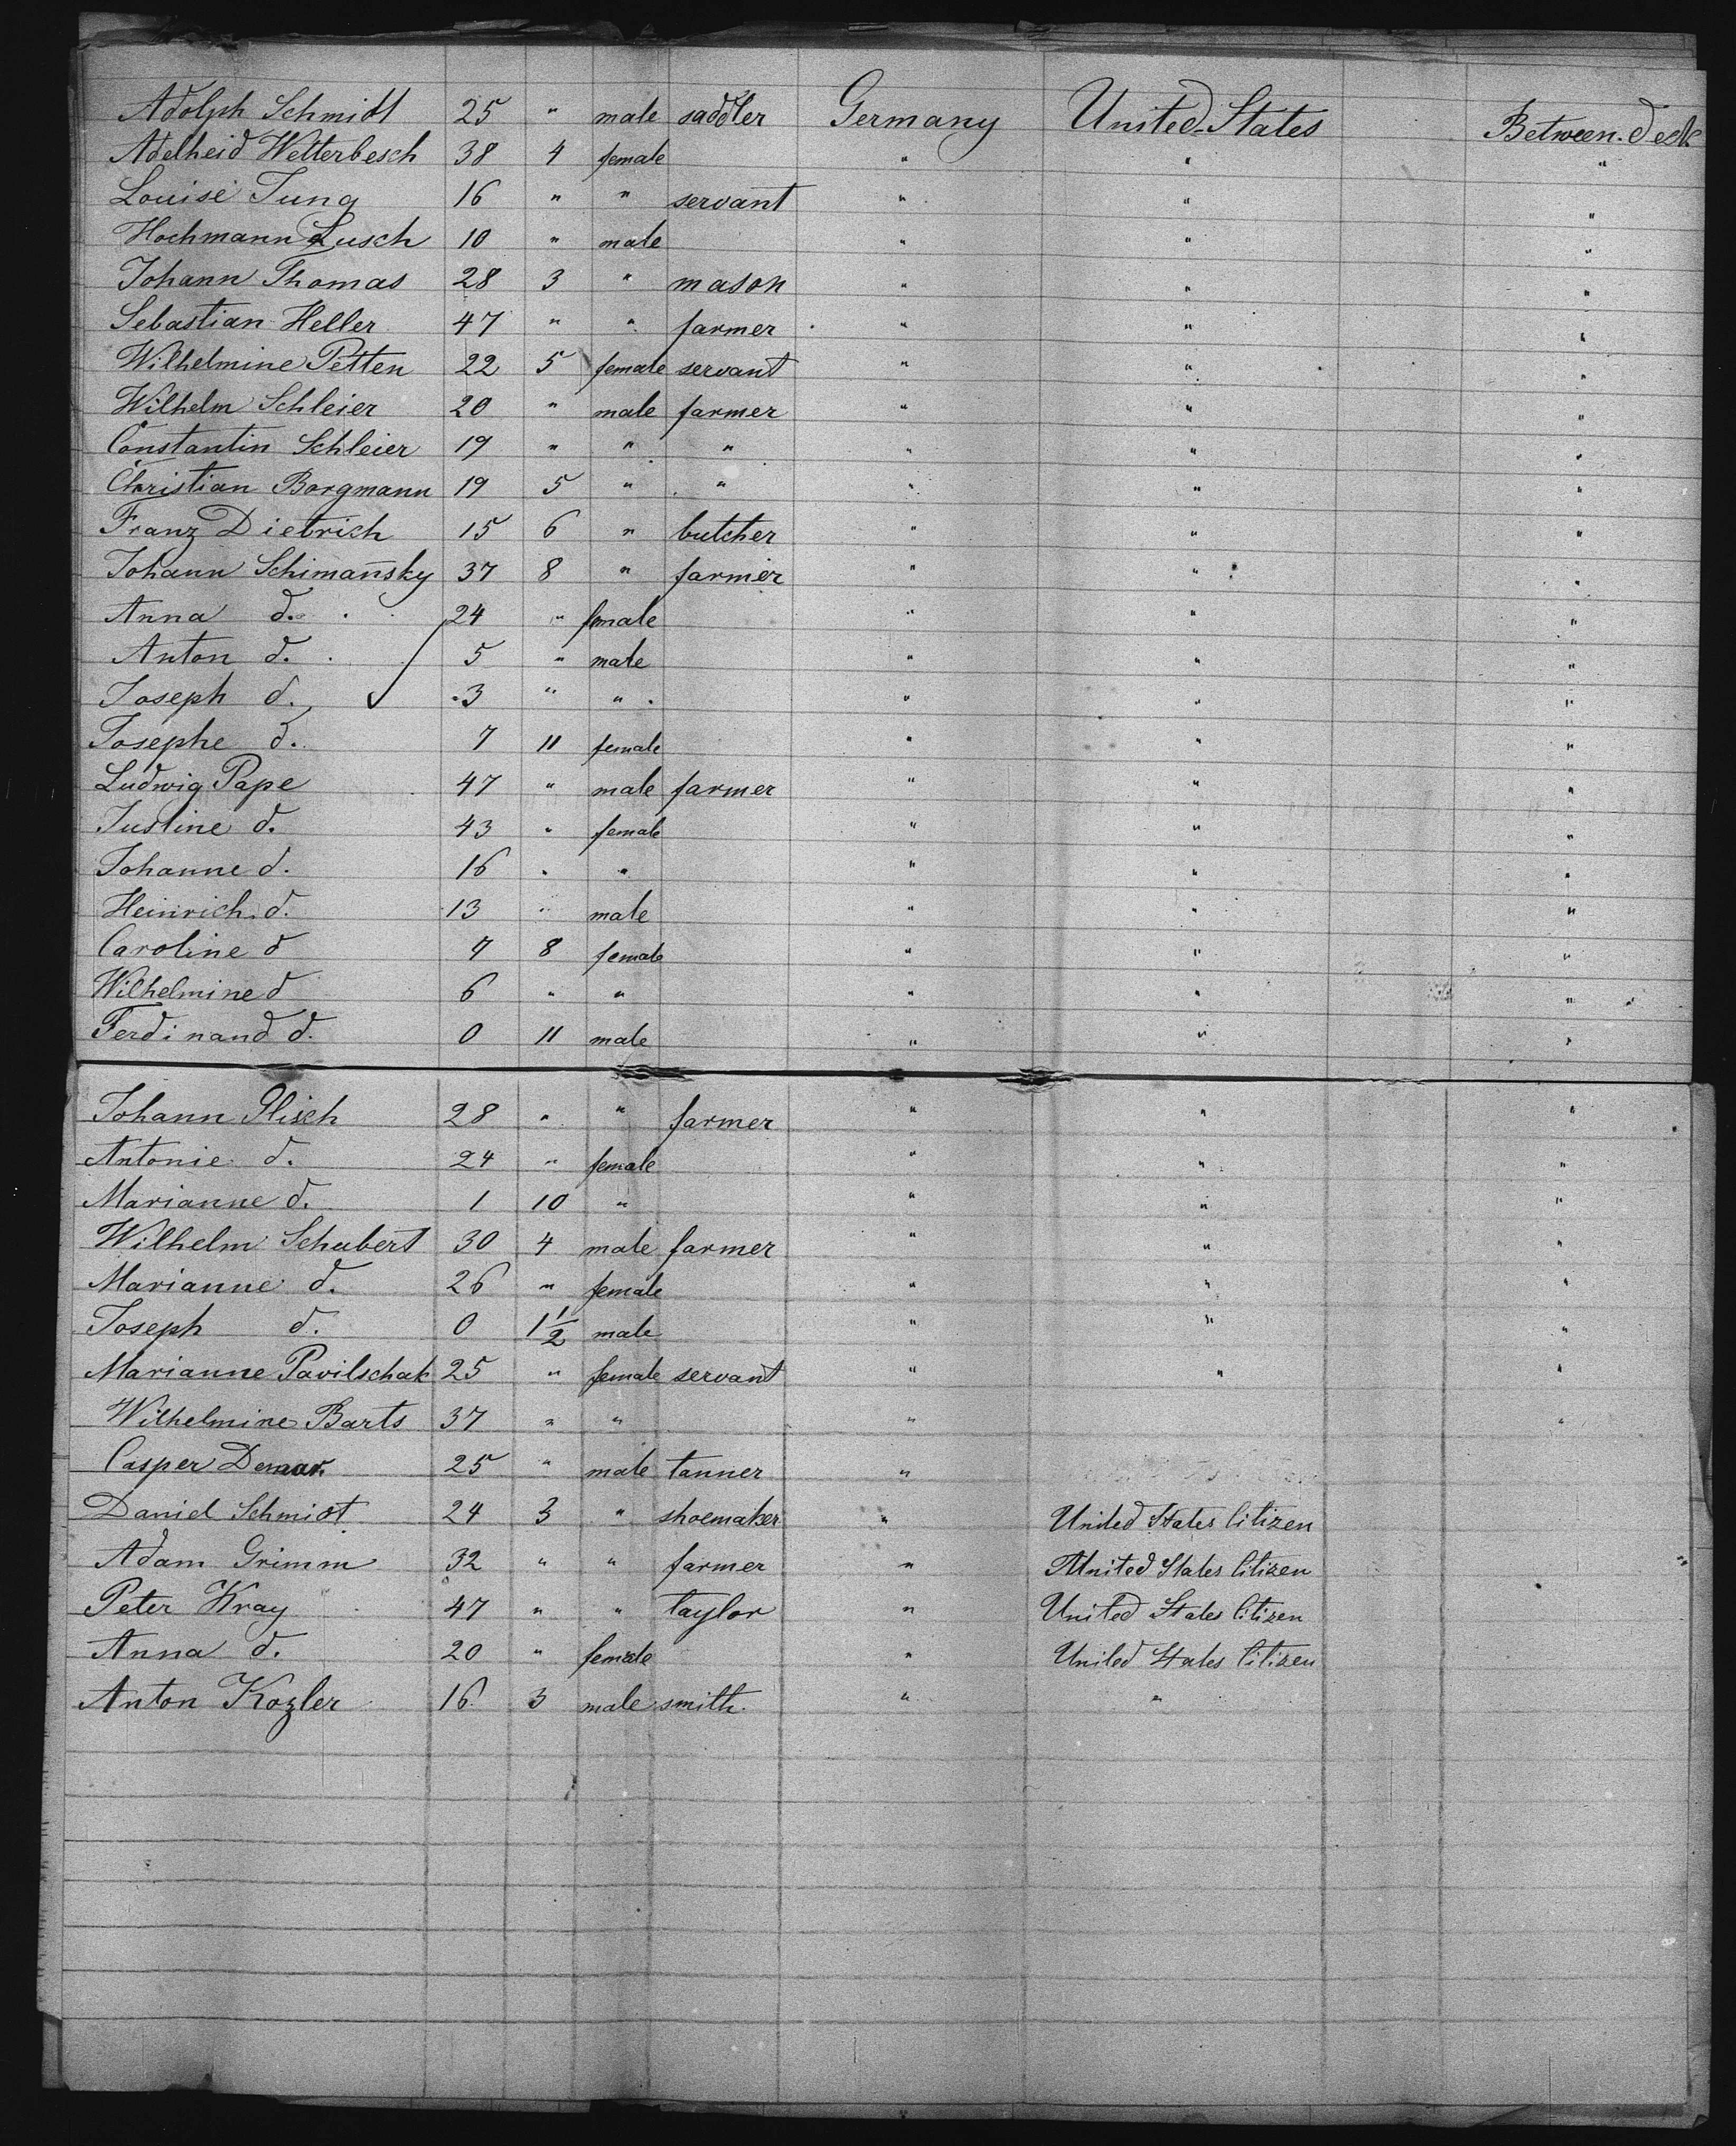 Adolph Schmidt 25 " male saddler Germany United States Between-deck
Adelheid Wetterbesch 38 4 female " " "
Louise Jung 16 " " servant " " "
Hochmann Lusch 10 " male " " "
Johann Thomas 28 3 " mason " " "
Sebastian Heller 47 " " farmer " " "
Wilhelmine Petten 22 5 female servant " " "
Wilhelm Schleier 20 " male farmer " " "
Constantin Schleier 19 " " " " " "
Christian Borgmann 19 5 " " " " "
Franz Dietrich 15 6 " butcher " " "
Johann Schimansky 37 8 " farmer " " "
Anna d. 24 " female " " "
Anton d. 5 " male " " "
Joseph d. 3 " " " " "
Josephe d. 7 11 female " " "
Ludwig Pape 47 " male farmer " " "
Justine d. 43 " female " " "
Johanne d. 16 " " " " "
Heinrich d. 13 " male " " "
Caroline d 7 8 female " " "
Wilhelmine d 6 " " " " "
Ferdinand d. 0 11 male " " "
Johann Glisch 28 " " farmer " " "
Antonie d. 24 " female " " "
Marianne d. 1 10 " " " "
Wilhelm Schubert 30 4 male farmer " " "
Marianne d. 26 " female " " "
Joseph d. 0 1½ male " " "
Marianne Pavilschak 25 " female servant " " "
Wilhelmine Barts 37 " " " "
Casper 25 " male tanner "
Daniel Schmidt 24 3 " shoemaker " United States Citizen
Adam Grimm 32 " " farmer " United States Citizen "
Peter Kray 47 " " taylor " United States Citizen
Anna d. 20 " female " United States Citizen
Anton Kozler 16 3 male smith " "